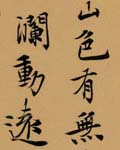 山色有無
瀾動遠